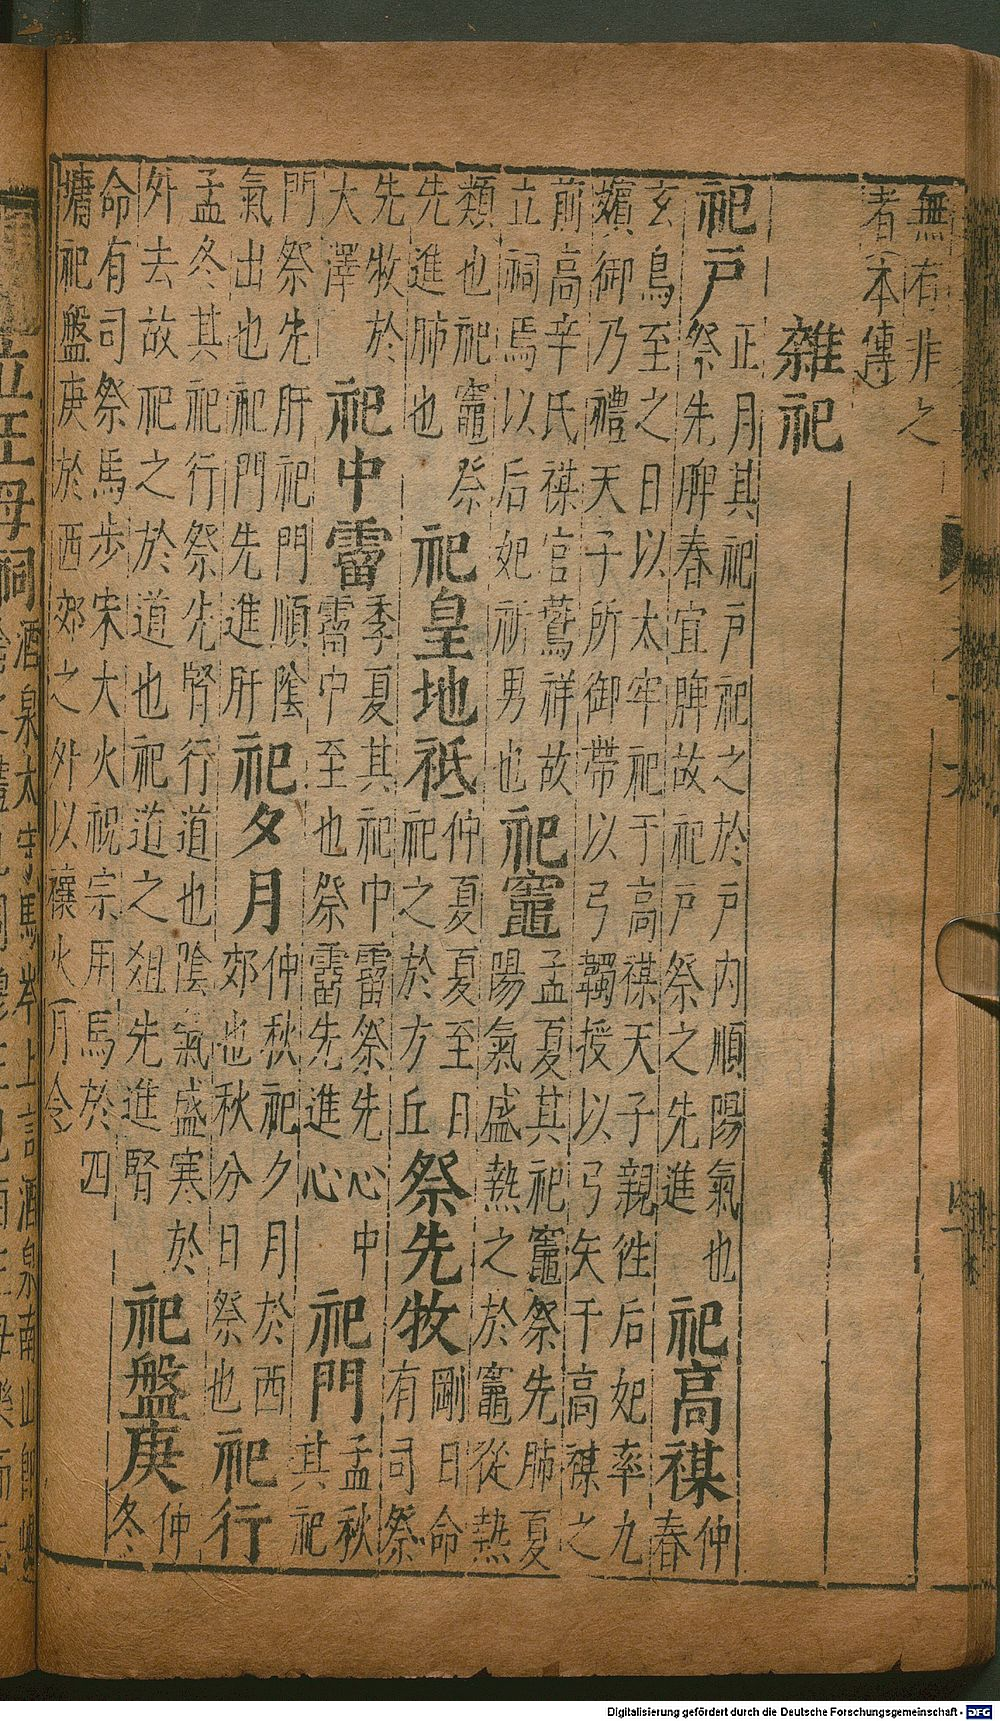 無有非之
者本傳
雜祀
祀戶
正月其祀戶祀之於戶內順陽氣也
祭先脾春宜脾故祀戶祭之先進
祀高禖
仲
春
玄鳥至之日以太牢祀于高禖天子親往后妃率九
嬪御乃禮天子所御帶以弓韣授以弓矢于高禖之
前高辛氏禖官鷰祥故
立祠焉以后妃祈男也
祀竈
孟夏其祀竈祭先肺夏
陽氣盛熱之於竈從熱
類也祀竈祭
先進肺也
祀皇地祗
仲夏夏至日
祀之於方丘
祭先牧
剛日命
有司祭
先牧於
大澤
祀中霤
季夏其祀中霤祭先心中
霤中至也祭霤先進心
祀門
孟秋
其祀
門祭先肝祀門順陰
氣出也祀門先進肝
祀夕月
仲秋祀夕月於西
郊也秋分日祭也
祀行
孟冬其祀行祭先腎行道也陰氣盛寒於
外去故祀之於道也祀道之俎先進腎
祀盤庚
仲
冬
命有司祭馬步宋大火祝宗用馬於四
墉祀盤庚於西郊之外以禳火月令
立王母祠
酒泉太守馬岌上言酒泉南山即崐
Digitalisierung gefördert durch die Deutsche Forschungsgemeinschaft - DFG